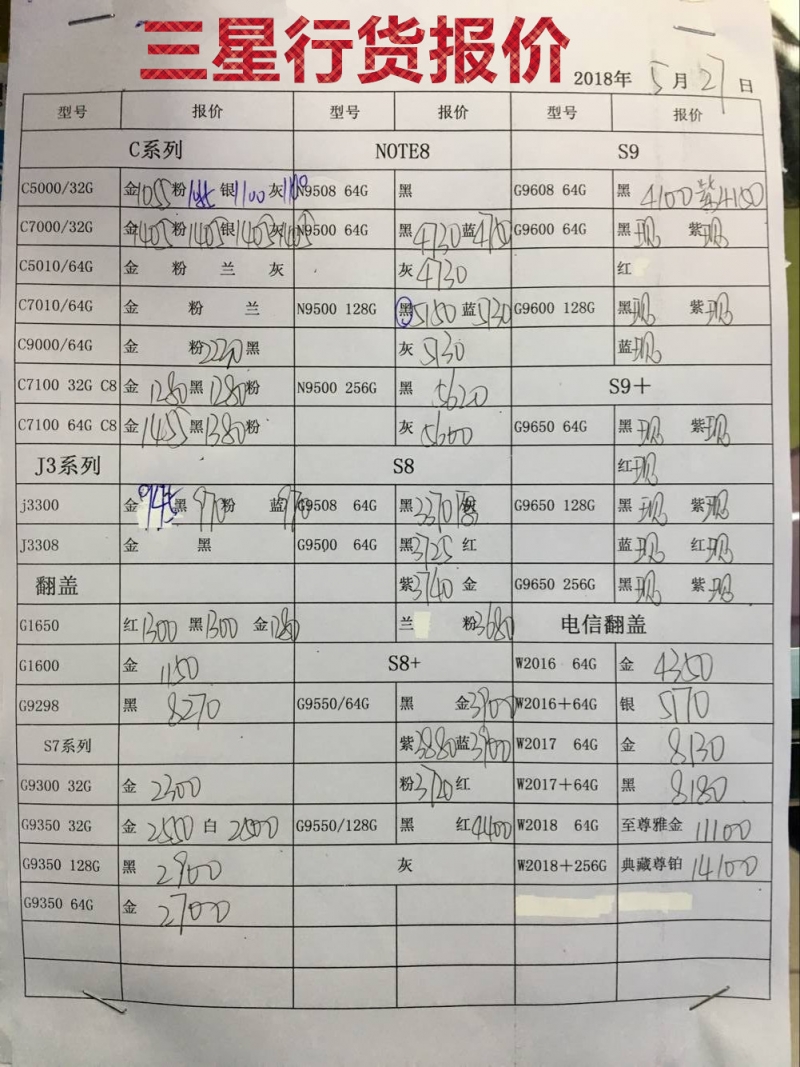 三星行货报价
2018年 5月27日
型号 报价 型号 报价 型号 报价
C系列 NOTE8 S9
C5000/32G 金1055 粉1085 银1100 灰 N9508 64G 黑 G9608 64G 黑 4100 紫4150
C7000/32G 金1405 粉1405 银1405 灰1405 N9500 64G 黑4730 蓝4750 G9600 64G 黑现 紫现
C5010/64G 金 粉 兰 灰 灰4730 红
C7010/64G 金 粉 兰 N9500 128G 黑5150 蓝5130 G9600 128G 黑现 紫现
C9000/64G 金 粉2220 黑 灰 5130 蓝现
C7100 32G C8 金 1280 黑 1280 粉 N9500 256G 黑 5620 S9+
C7100 64G C8 金1455 黑1380 粉 灰 5600 G9650 64G 黑现 紫现
J3系列 S8 红现
j3300 金945 黑 970 粉 蓝970 G9508 64G 黑3370 G9650 128G 黑现 紫现
J3308 金 黑 G9500 64G 黑3725 红 蓝现 红现
翻盖 紫3740 金 G9650 256G 黑现 紫现
G1650 红1300 黑1300 金1280 兰 粉3680 电信翻盖
G1600 金 1150 S8+ W2016 64G 金 4350
G9298 黑 8270 G9550/64G 黑 金3900 W2016+64G 银 5170
S7系列 紫3880 蓝3900 W2017 64G 金 8130
G9300 32G 金 2300 粉3720 红 W2017+64G 黑 8180
G9350 32G 金 2550 白 2500 G9550/128G 黑 红4400 W2018 64G 至尊雅金 11100
G9350 128G 黑 2900 灰 W2018+256G 典藏尊铂 14100
G9350 64G 金 2700